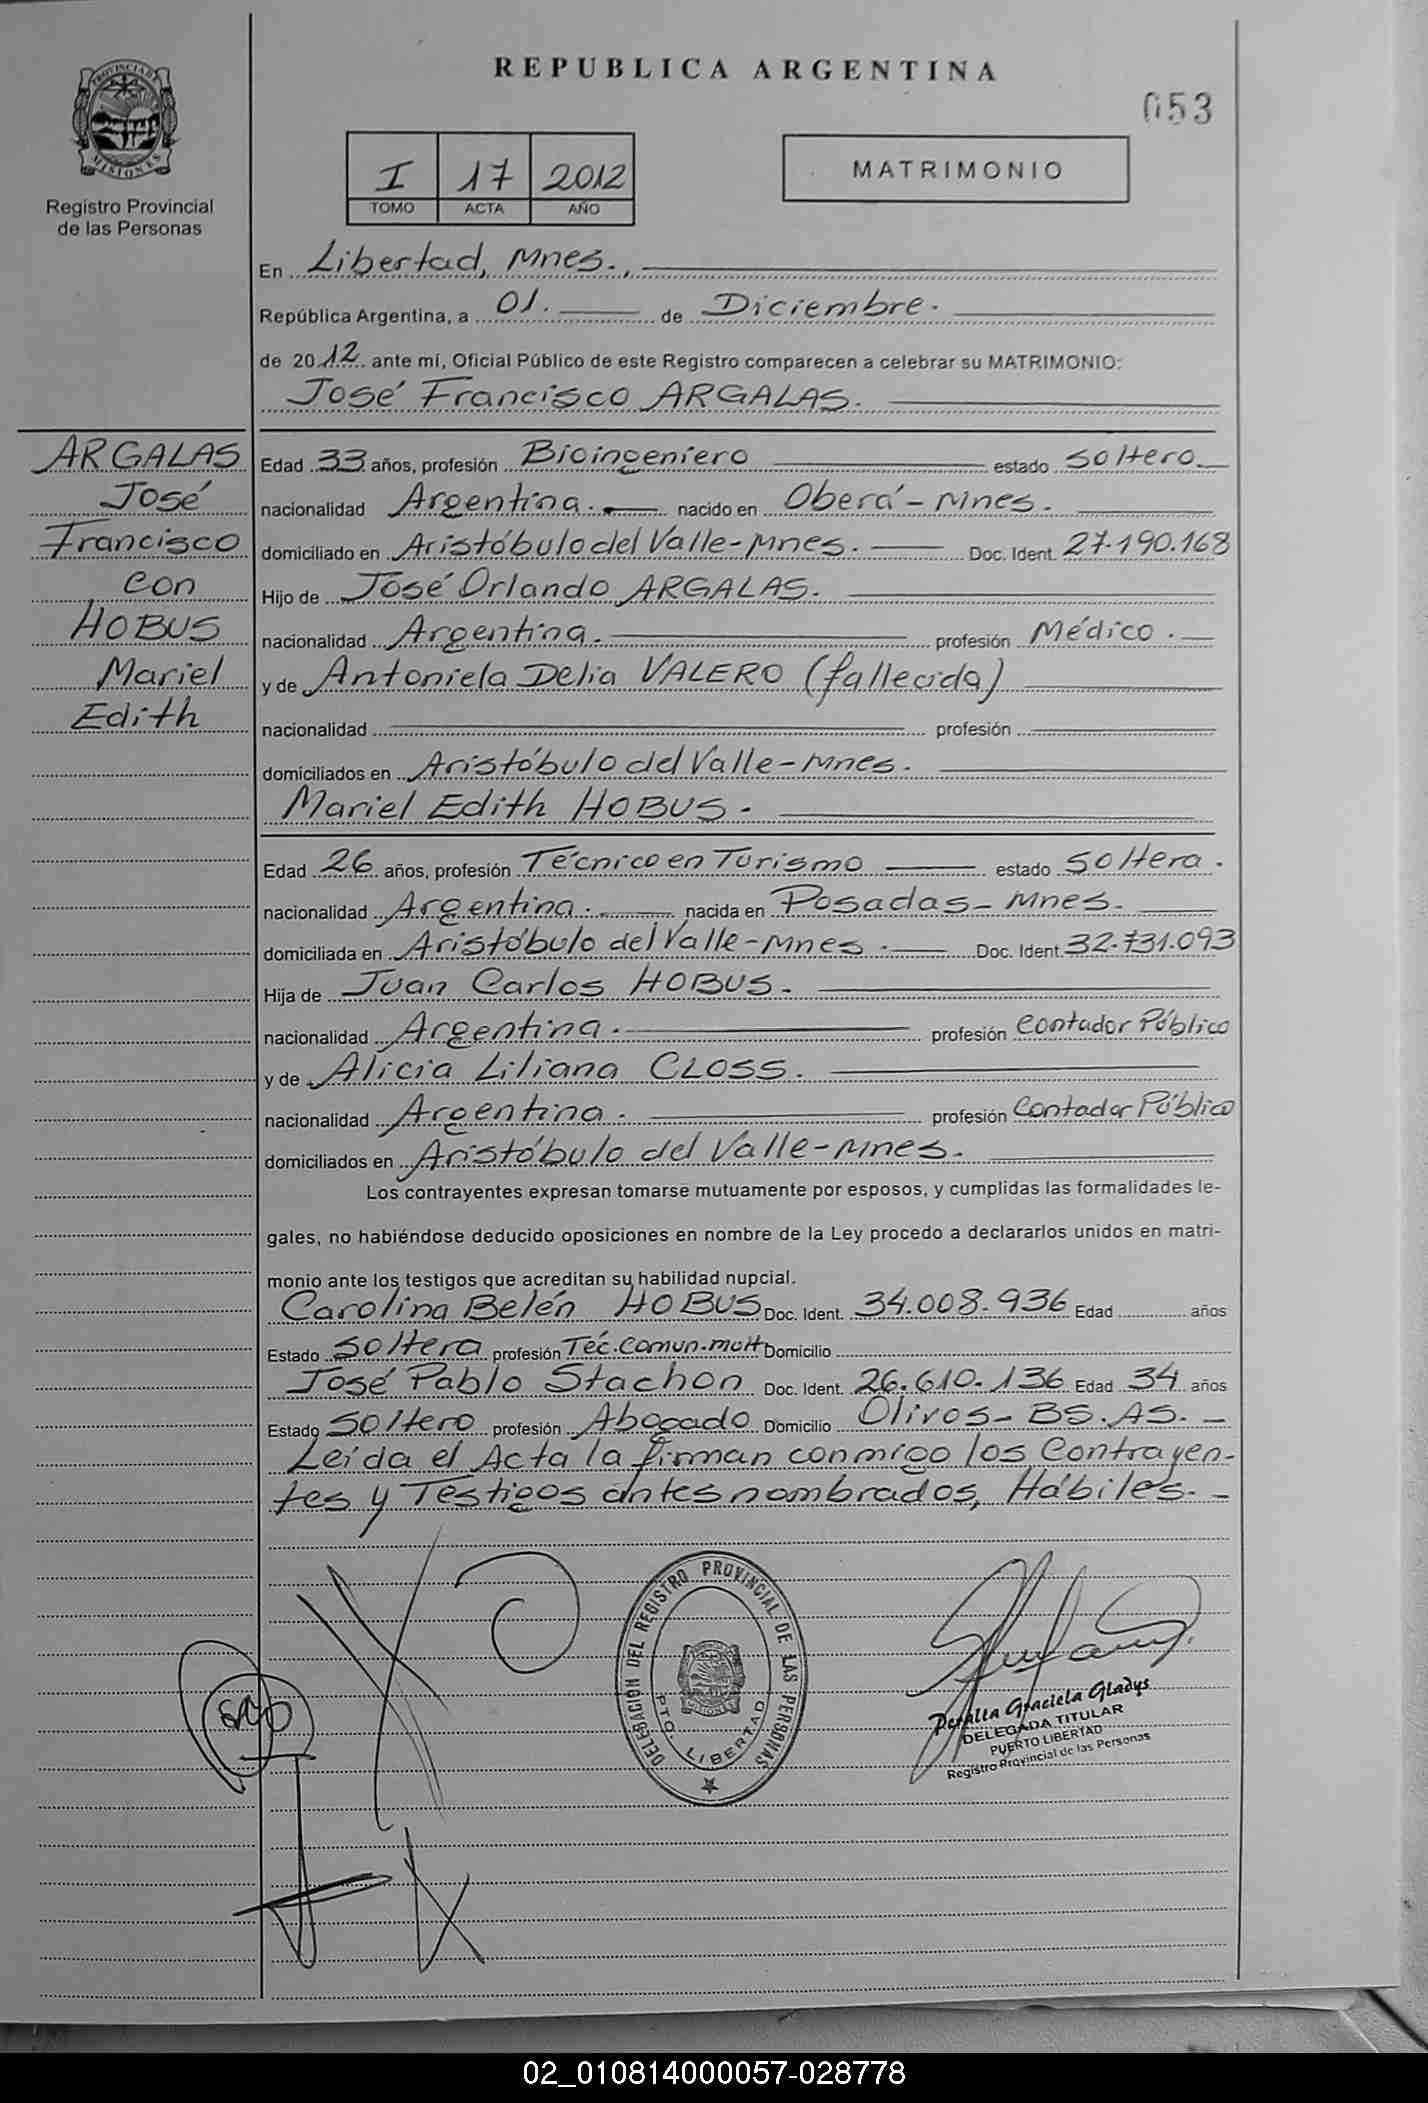 REPUBLICA ARGENTINA
053
PROVINCIA DE MISIONES
Registro Provincial
de las Personas
I 17 2012
TOMO ACTA AÑO
MATRIMONIO
En Libertad, Mnes.,
República Argentina, a 01. de Diciembre.
de 2012 ante mí, Oficial Público de este Registro comparecen a celebrar su MATRIMONIO:
José Francisco ARGALAS.
ARGALAS
José
Francisco
con
HOBUS
Mariel
Edith
Edad 33 años, profesión Bioingeniero estado soltero
nacionalidad Argentina. nacido en Oberá-Mnes.
domiciliado en Aristóbulo del Valle-Mnes. Doc. Ident. 27.190.168
Hijo de José Orlando ARGALAS.
nacionalidad Argentina. profesión Médico.
y de Antoniela Delia VALERO (fallecida)
nacionalidad profesión
domiciliados en Aristóbulo del Valle-Mnes.
Mariel Edith HOBUS.
Edad 26 años, profesión Técnico en Turismo estado soltera.
nacionalidad Argentina. nacida en Posadas-Mnes.
domiciliada en Aristóbulo del Valle-Mnes. Doc. Ident. 32.731.093
Hija de Juan Carlos HOBUS.
nacionalidad Argentina. profesión Contador Público
y de Alicia Liliana CLOSS.
nacionalidad Argentina. profesión Contador Público
domiciliados en Aristóbulo del Valle-Mnes.
Los contrayentes expresan tomarse mutuamente por esposos, y cumplidas las formalidades le-
gales, no habiéndose deducido oposiciones en nombre de la Ley procedo a declararlos unidos en matri-
monio ante los testigos que acreditan su habilidad nupcial.
Carolina Belén HOBUS Doc. Ident. 34.008.936 Edad años
Estado soltera profesión Téc.Comun.mult Domicilio
José Pablo Stachon Doc. Ident. 26.610.136 Edad 34 años
Estado soltero profesión Abogado Domicilio Olivos-BS.AS.-
Leída el Acta la firman conmigo los Contrayen-
tes y Testigos antes nombrados, Hábiles.-
DELEGACION DEL REGISTRO PROVINCIAL DE LAS PERSONAS
PTO. LIBERTAD
Peralta Graciela Gladys
DELEGADA TITULAR
PUERTO LIBERTAD
Registro Provincial de las Personas
02_010814000057-028778